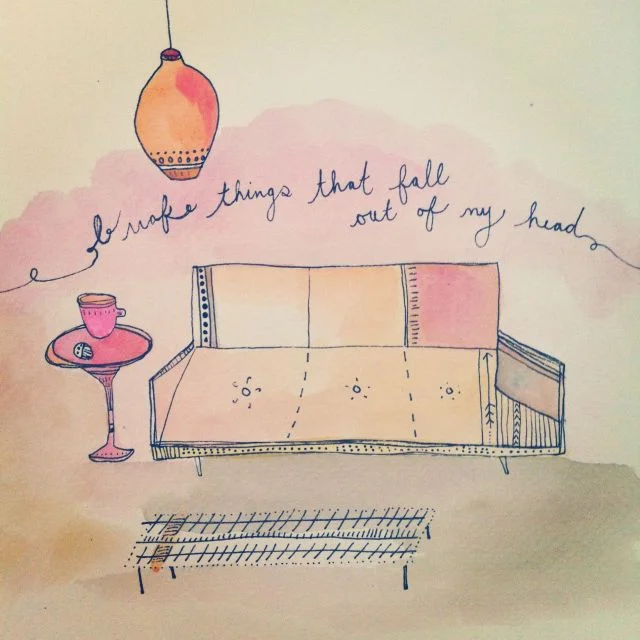 I make things that fall
out of my head